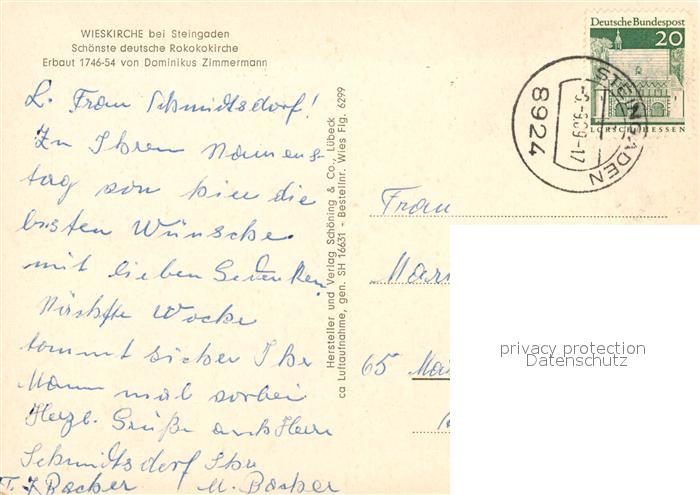 WIESKIRCHE bei Steingaden
Schönste deutsche Rokokokirche
Erbaut 1746-54 von Dominikus Zimmermann
L. Frau Schmidtsdorf!
Zu Ihrem Namens-
tag von hier die
besten Wünsche
mit lieben Gedenken.
Nächste Woche
kommt sicher Ihr
Mann mal vorbei
Herzl. Grüße auch Herrn
Schmidtsdorf Ihre
Backer M. Backer
Hersteller und Verlag Schöning & Co., Lübeck
ca Luftaufnahme, gen. SH 16631 - Bestellnr. Wies Flg. 6299
Deutsche Bundespost
20
LORSCH/HESSEN
STEINGADEN
8924
Frau
65 Mai
privacy protection
Datenschutz